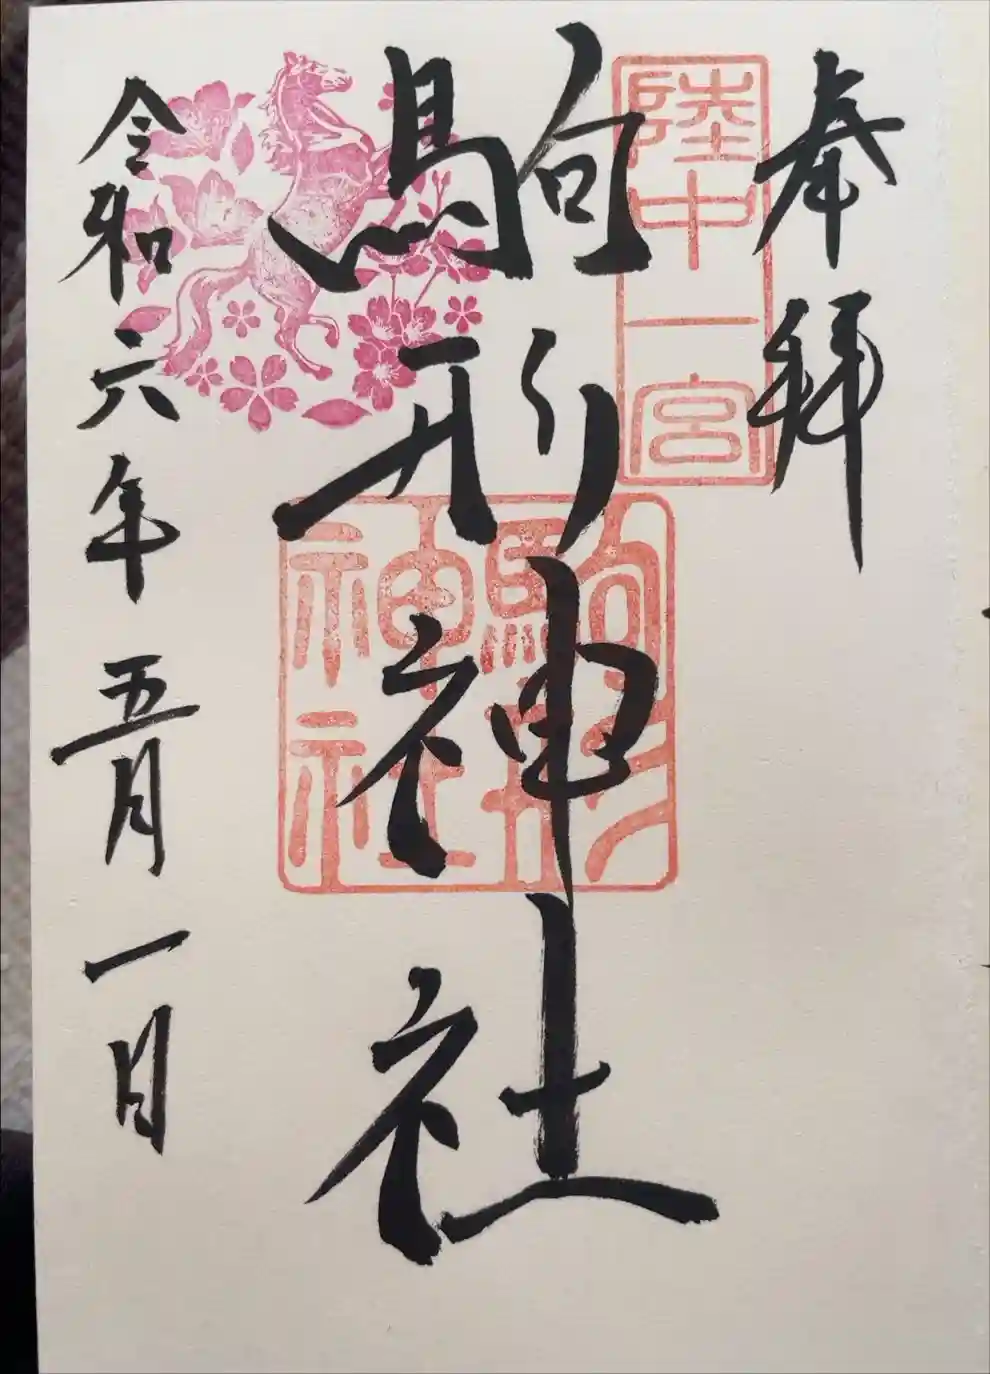 奉拝
陸中一宮
駒形神社
駒形神社
令和六年五月一日